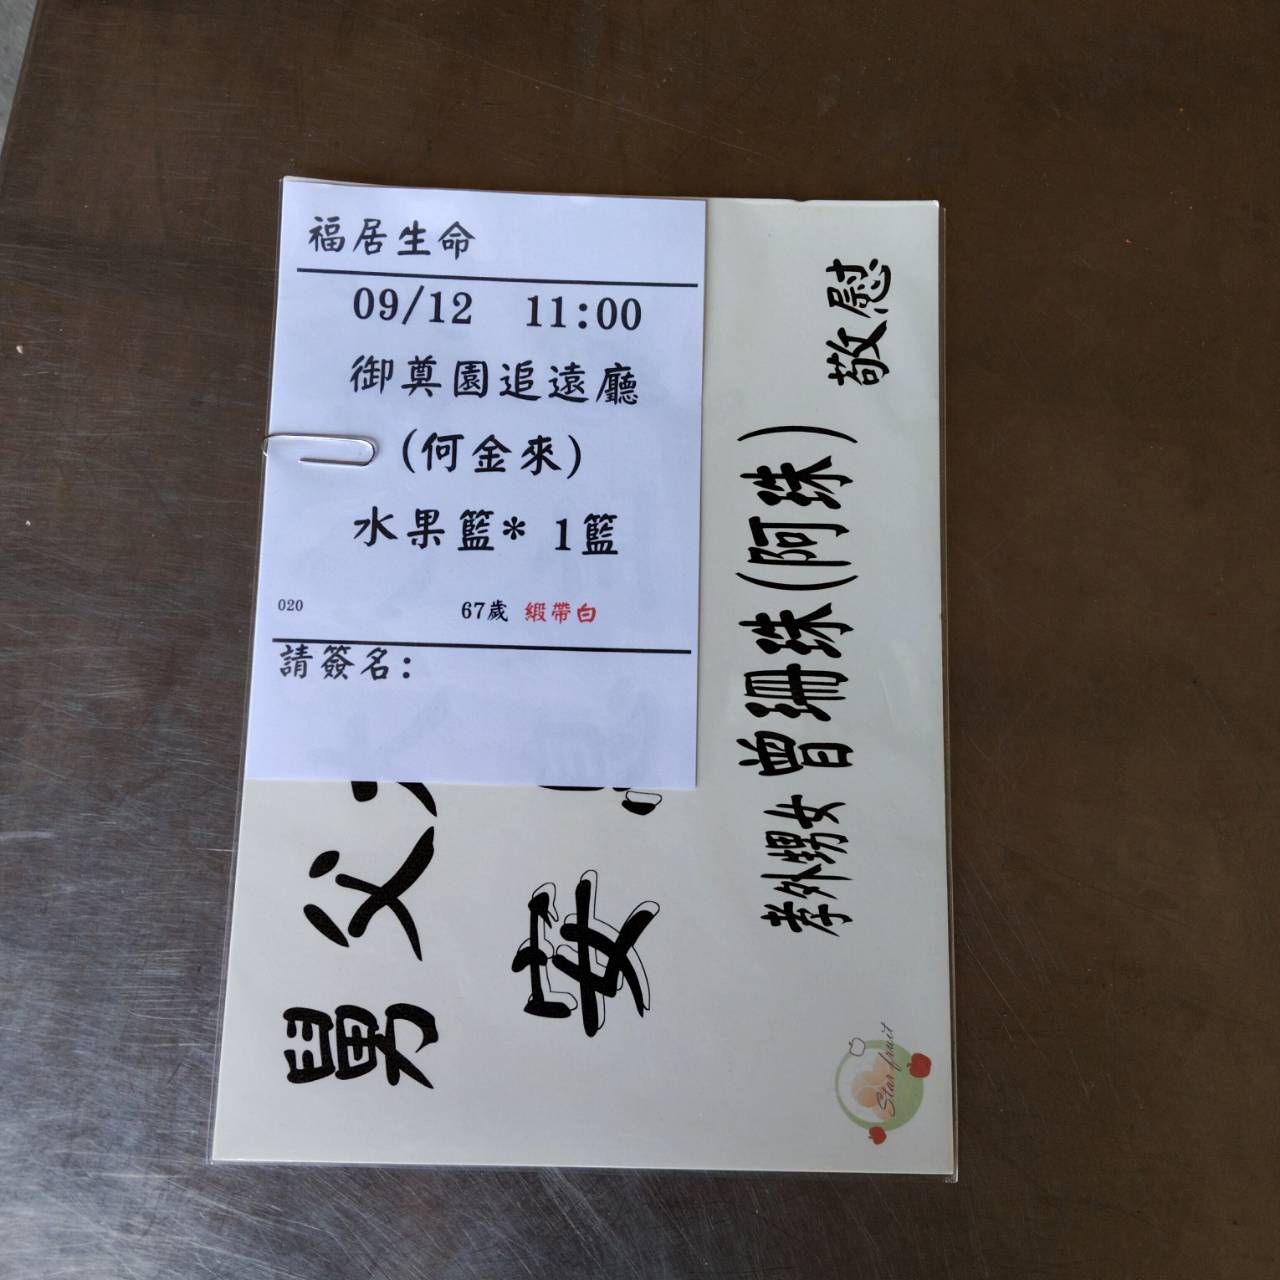 福居生命
09/12 11:00
御奠園追遠廳
(何金來)
水果籃* 1籃
020 67歲 緞帶白
請簽名:
舅父
安
孝外甥女 曾珊珠(阿珠) 敬慰
Star fruit